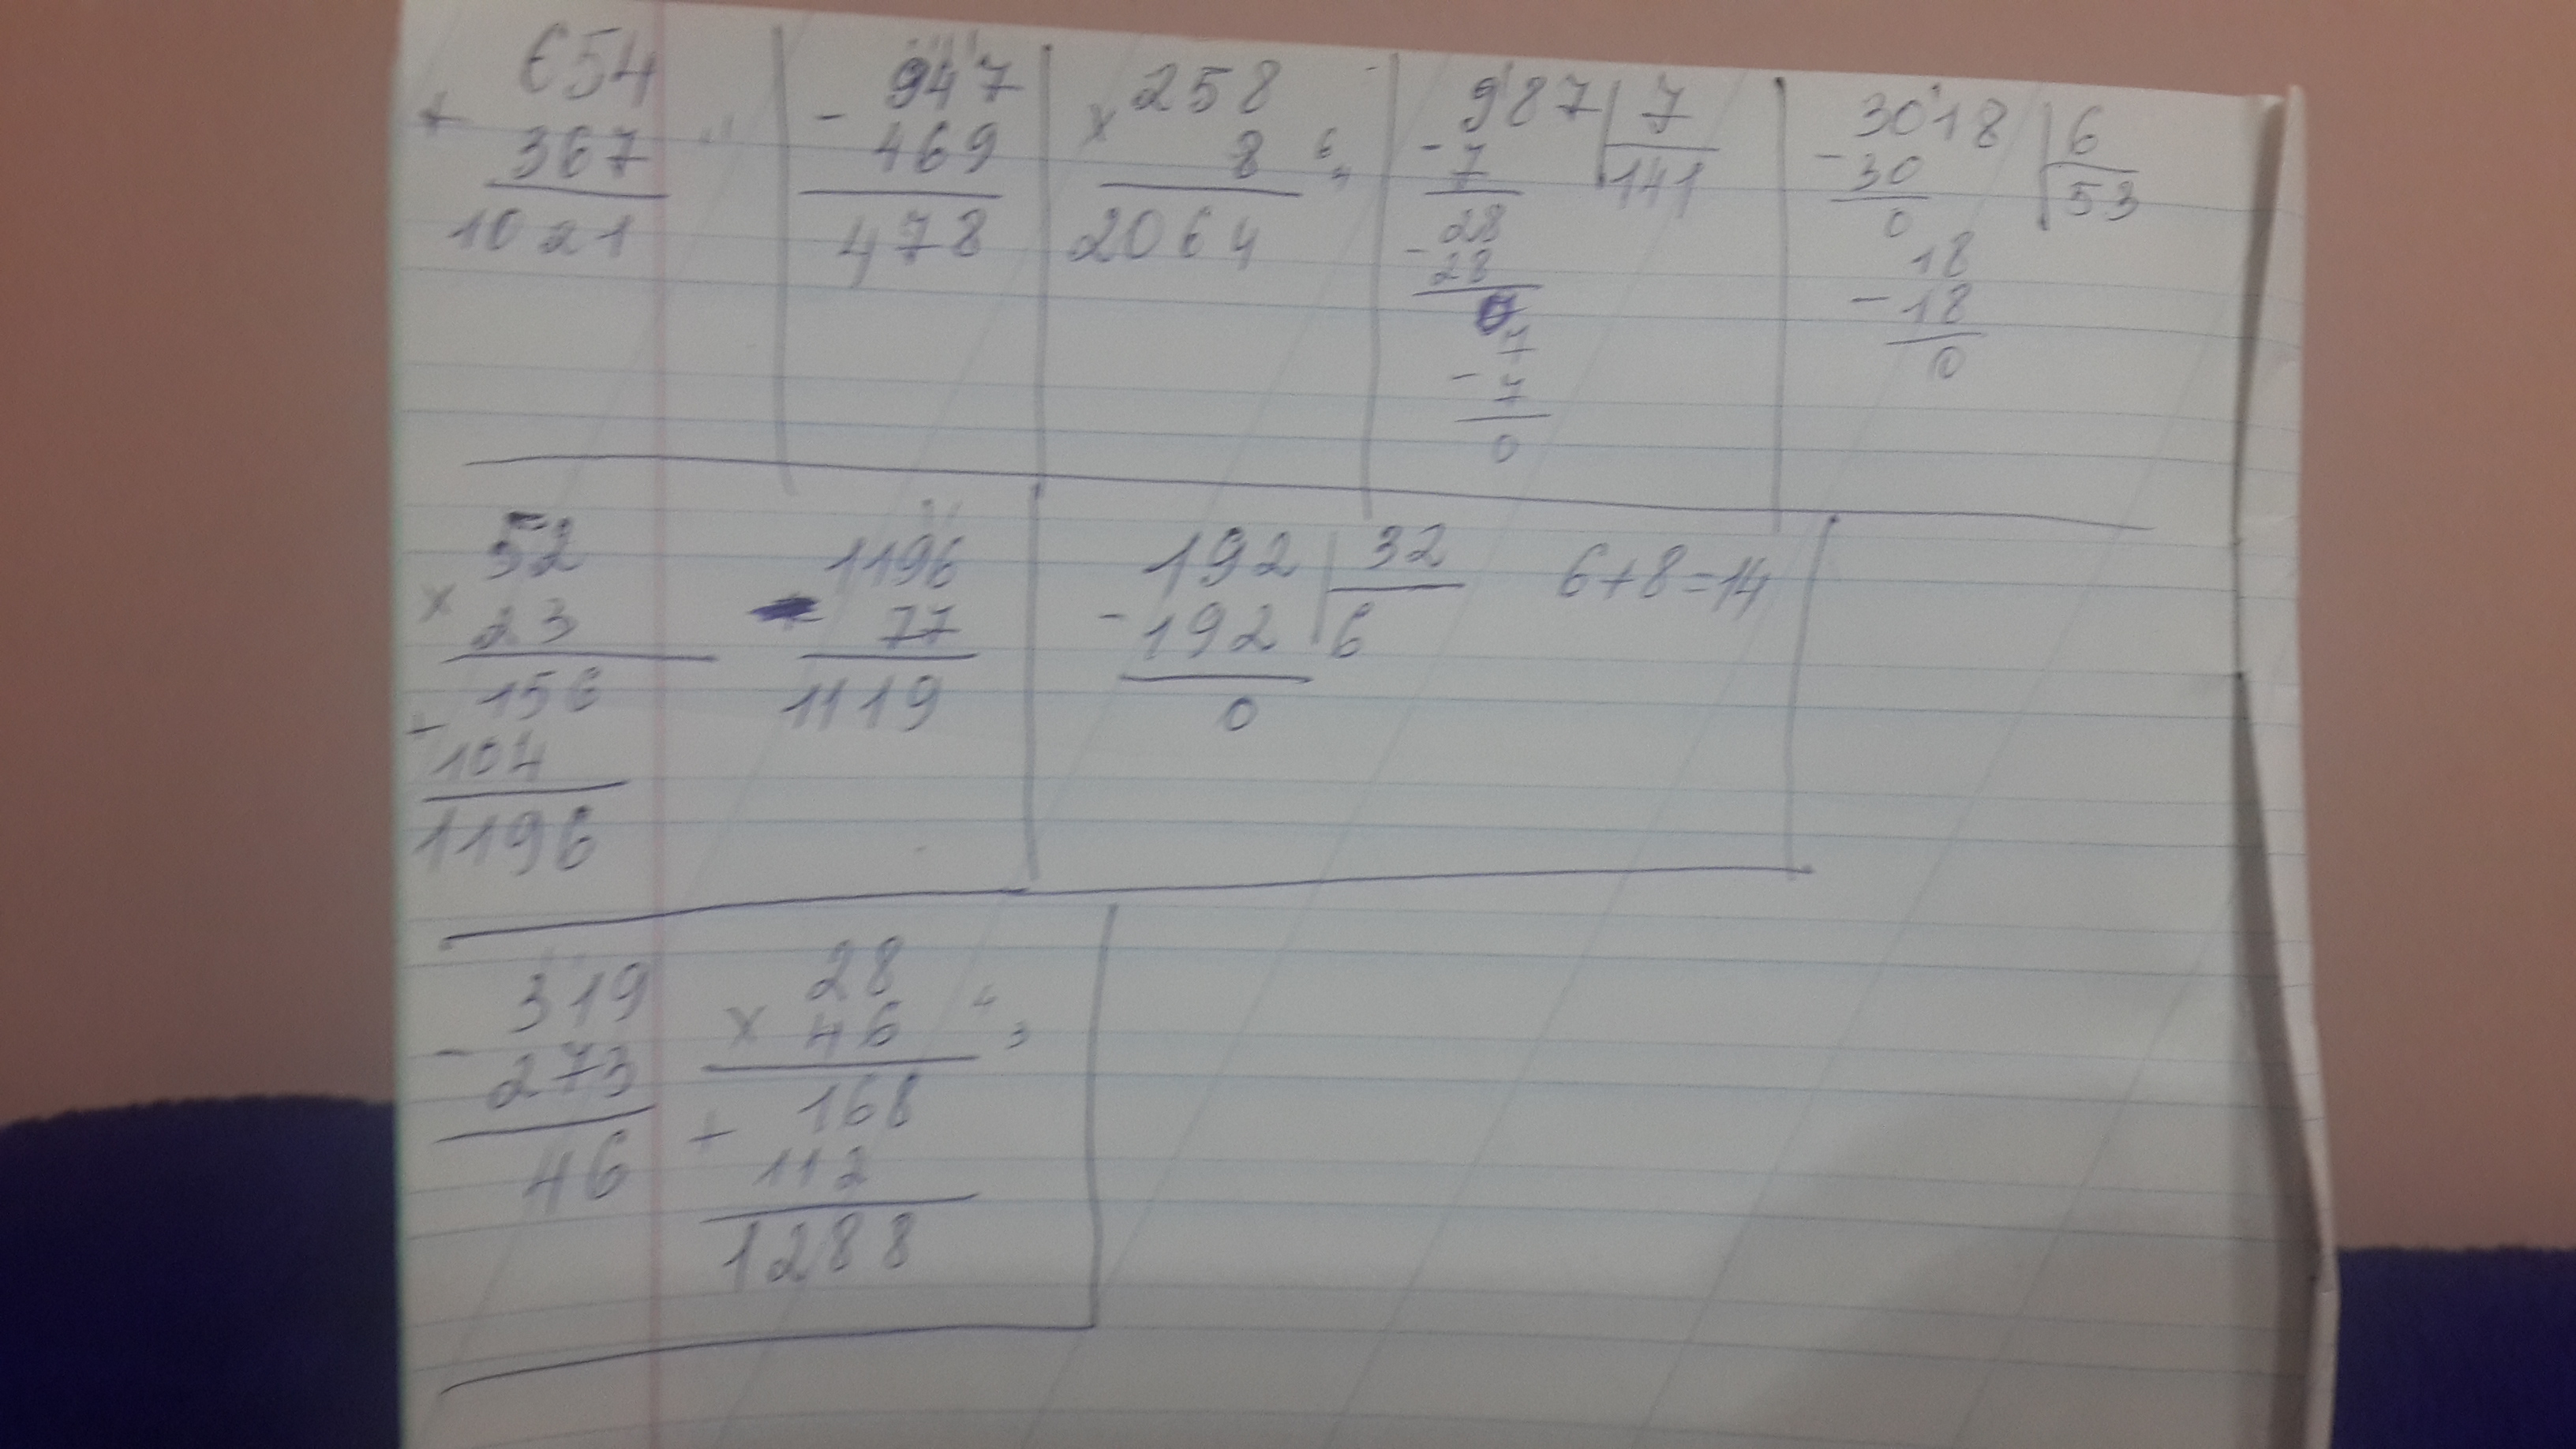 654
+ 367
1021
947
- 469
478
258
× 8
2064
6
4
987 | 7
- 7 141
28
- 28
0
7
- 7
0
3018 | 6
- 30 53
0
18
- 18
0
52
× 23
156
+ 104
1196
1196
- 77
1119
192 | 32
- 192 6
0
6+8=14
319
- 273
46
28
× 46
168
+ 112
1288
4
3